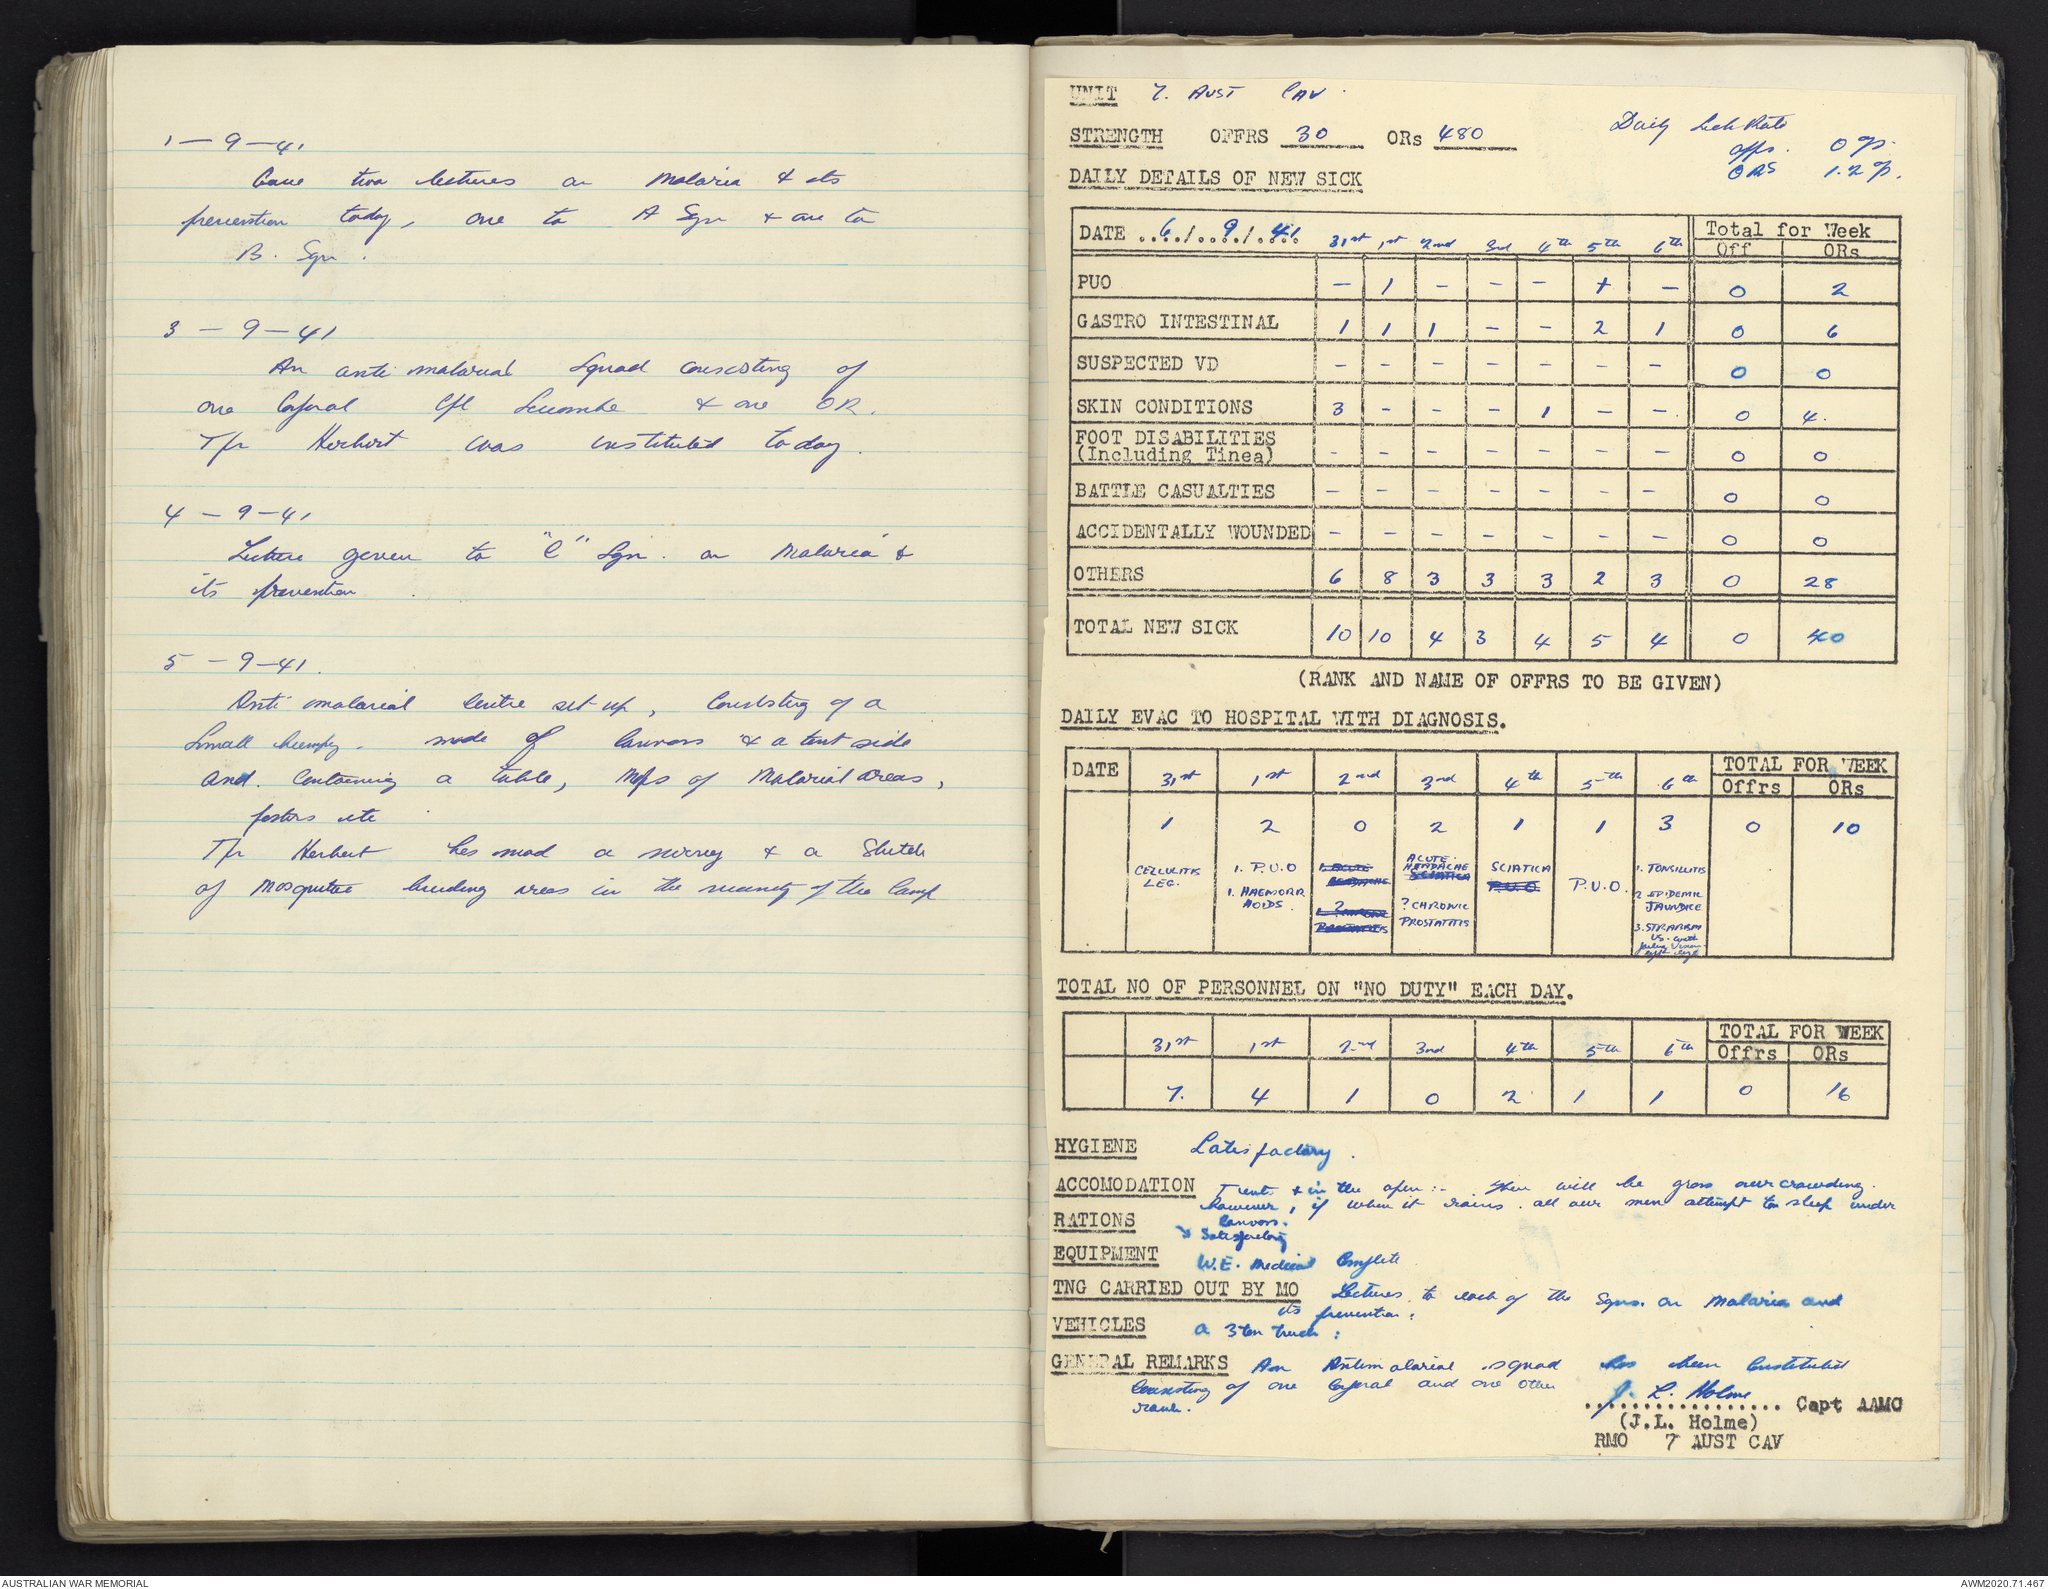 1-9-41
Gave two lectures on Malaria & its
prevention today, one to A Sqn & one to
B. Sqn.
3-9-41
An anti malarial Squad consisting of
one Corporal Cpl & one OR.
Tpr Herbert was instituted today.
4-9-41
Lecture given to "C" Sqn. on Malaria &
its prevention
5-9-41.
Anti malarial centre set up, consisting of a
small made of canvas & a tent side
and containing a table, Mps of Malarial areas,
posters etc
Tpr Herbert has mad a survey & a Sketch
of Mosquitoe breeding areas in the vicinity of the Camp
UNIT 7. AUST CAV.
Daily Sick Rate
STRENGTH OFFRS 30 ORs 480
offs. 0%.
ORS 1.2%.
DAILY DETAILS OF NEW SICK
DATE 6/9/41 31st 1st 2nd 3rd 4th 5th 6th Total for Week
Off ORs
PUO - 1 - - - + - 0 2
GASTRO INTESTINAL 1 1 1 - - 2 1 0 6
SUSPECTED VD - - - - - - - 0 0
SKIN CONDITIONS 3 - - - 1 - - 0 4.
FOOT DISABILITIES
(Including Tinea) - - - - - - - 0 0
BATTLE CASUALTIES - - - - - - - 0 0
ACCIDENTALLY WOUNDED - - - - - - - 0 0
OTHERS 6 8 3 3 3 2 3 0 28
TOTAL NEW SICK 10 10 4 3 4 5 4 0 40
(RANK AND NAME OF OFFRS TO BE GIVEN)
DAILY EVAC TO HOSPITAL WITH DIAGNOSIS.
DATE 31st 1st 2nd 3rd 4th 5th 6th TOTAL FOR WEEK
Offrs ORs
1 2 0 2 1 1 3 0 10
CELLULITIS
LEG.
1. P.U.O
1. HAEMORR
HOIDS.
1. ACUTE
HEADACHE
1 ? CHRONIC
PROSTATITIS
ACUTE
HEADACHE
SCIATICA
? CHRONIC
PROSTATITIS
SCIATICA
P.U.O
P.U.O.
1. TONSILLITIS
2 EPIDEMIC
JAUNDICE
3. STRABISM
US. with
failing Vision
TOTAL NO OF PERSONNEL ON "NO DUTY" EACH DAY.
31st 1st 2nd 3rd 4th 5th 6th TOTAL FOR WEEK
Offrs ORs
7. 4 1 0 2 1 1 0 16
HYGIENE Satisfactory.
ACCOMODATION Tents & in the open:- There will be gross overcrowding
however, if when it rains. all our men attempt to sleep under
canvas.
RATIONS Satisfactory
EQUIPMENT W.E. Medical Complete
TNG CARRIED OUT BY MO Lectures to each of the Sqns. on Malaria and
its prevention.
VEHICLES a 3 ton truck:
GENERAL REMARKS An Antimalarial squad has been Constituted
consisting of one Corporal and one Other
rank.
J. L. Holme
.................. Capt AAMC
(J.L. Holme)
RMO 7 AUST CAV
AUSTRALIAN WAR MEMORIAL
AWM2020.71.467